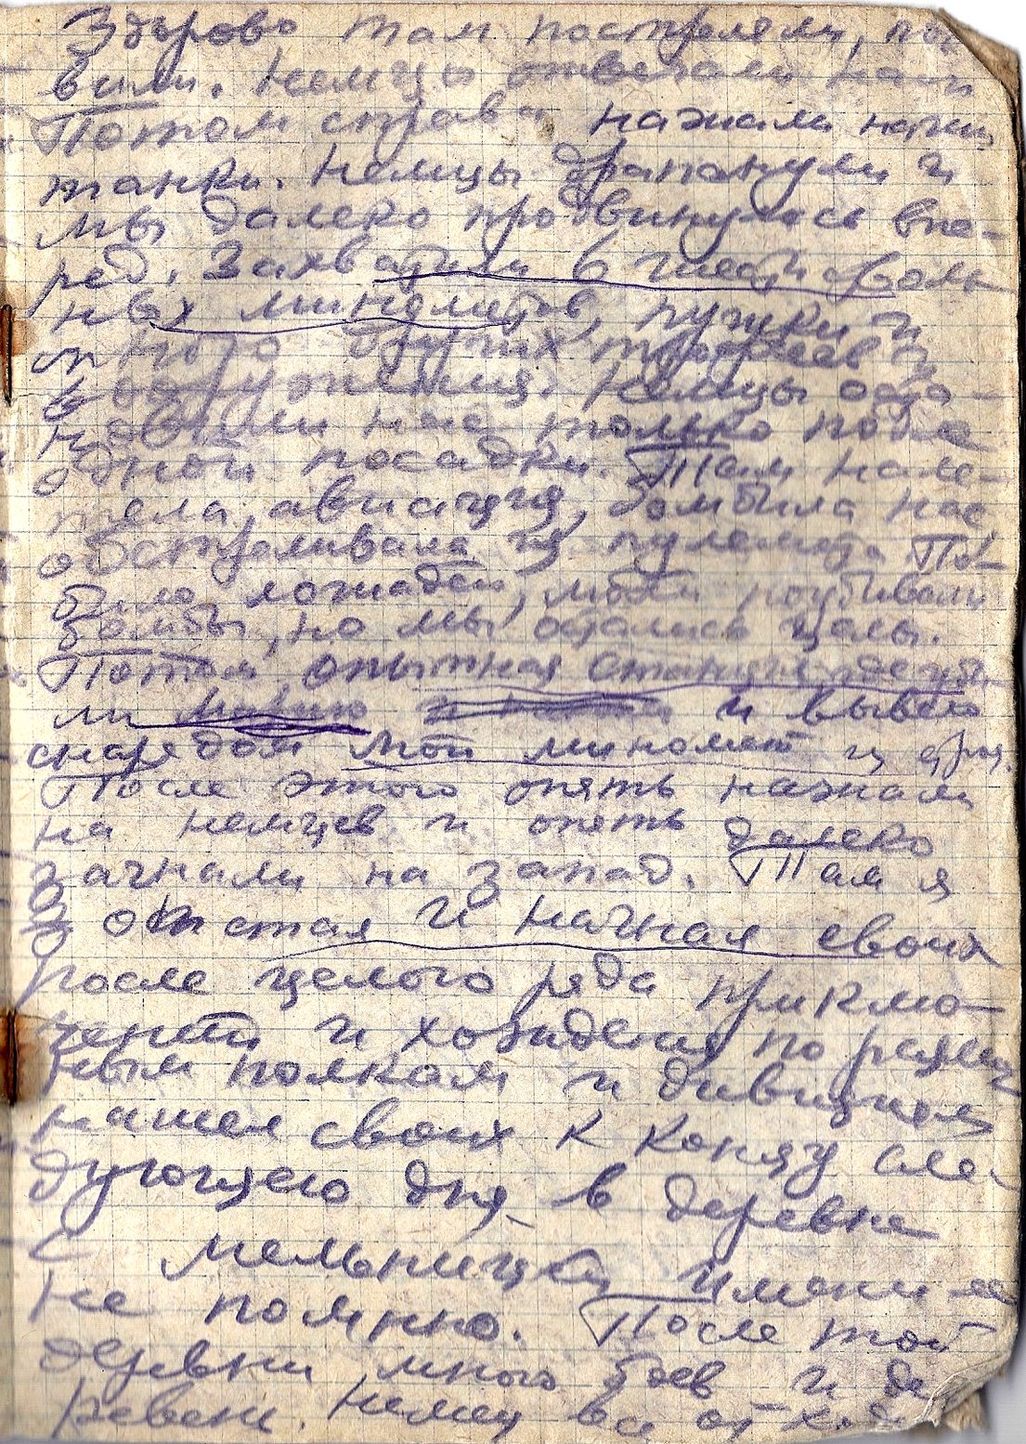 Здорово там постреляли, по-
вили. Немцы отвечали нам
Потом справа нажали наши
танки. Немцы драпанули и
мы далеко продвинулись впе-
ред. Захватили 6 шестиствольн
ных минометов, пушки и
много других трофеев и
вооружения. Немцы оста-
новили нас только после
одной посадки. Там нале-
тела авиация, бомбила нас
обстреливала из пулемета По-
било лошадей, людей
бомбы, но мы остались целы.
Потом опытная
ли и вывело
снарядом мой миномет из строя.
После этого опять нажали
на немцев и опять далеко
загнали на запад. Там я
отстал и начал своих
после целого ряда приклю-
чений и хождения по различ
ным полкам и дивизиям
нашел своих к концу сле-
дующего дня в деревне
с мельницей имени ее
не помню. После той
деревни много боев и де
ревень. Немец все отходил